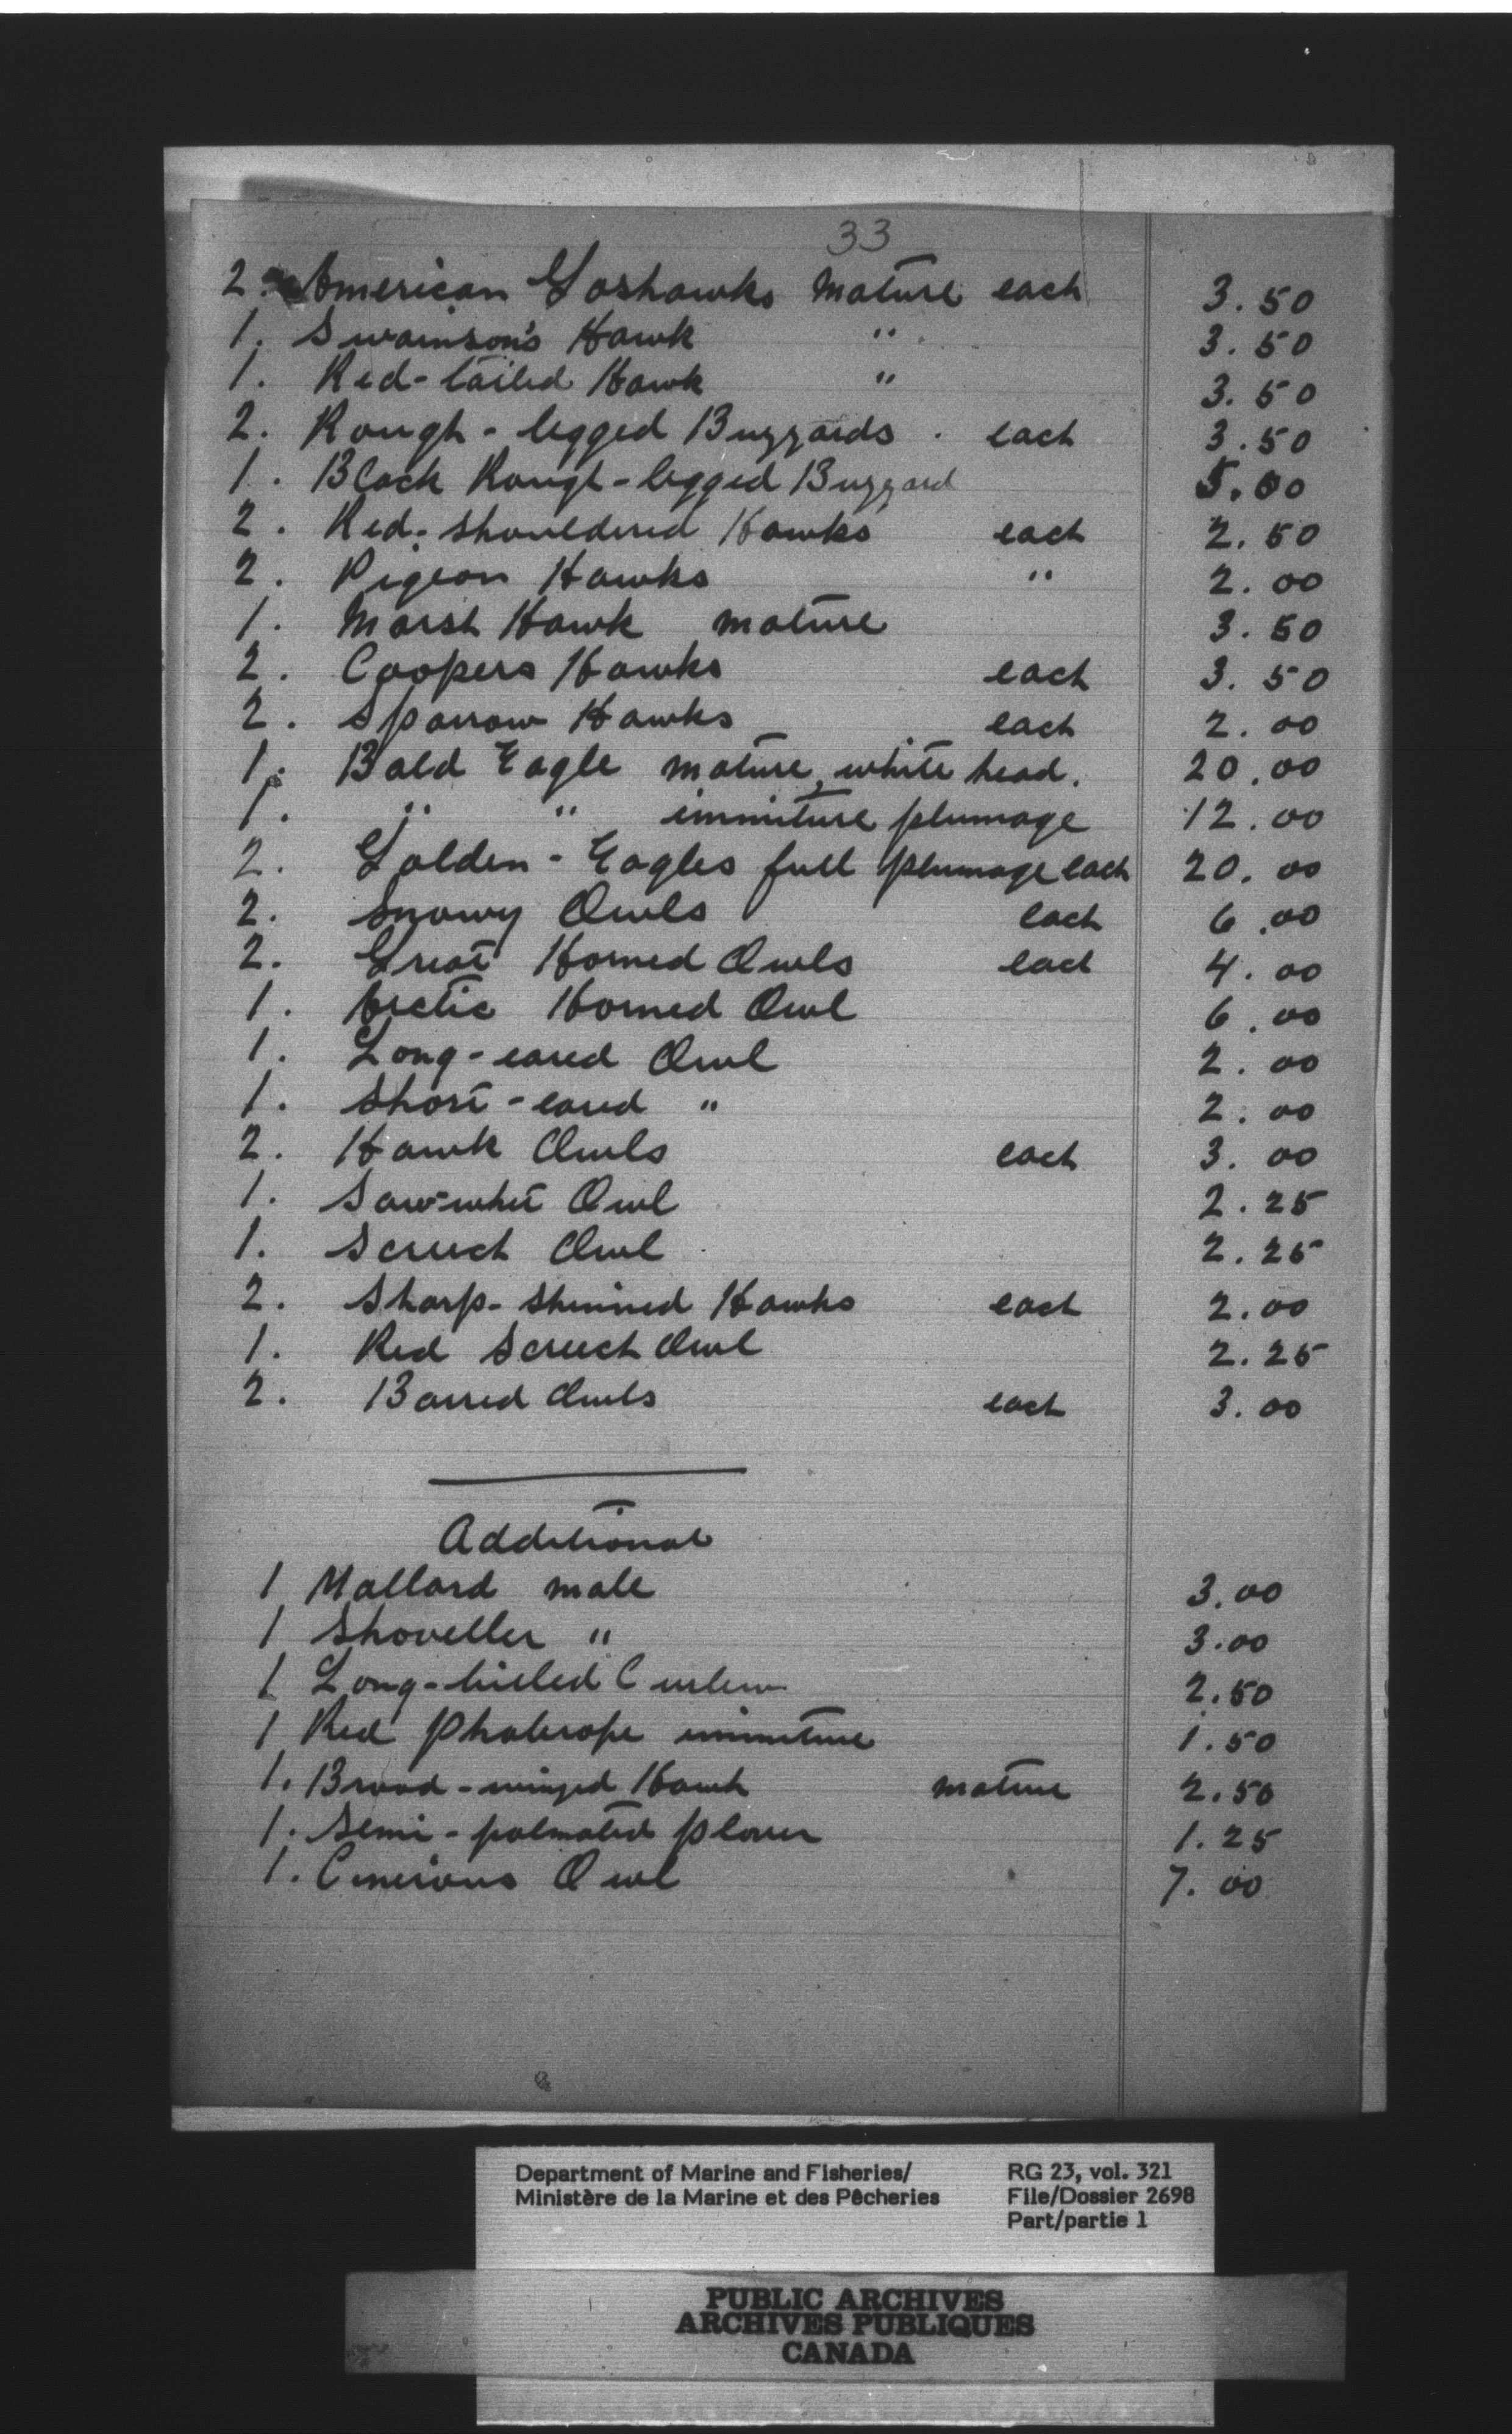 33
2. American Goshawks mature each 3.50
1. Swainson's Hawk " 3.50
1. Red-tailed Hawk " 3.50
2. Rough-legged Buzzards . each 3.50
1. Black Rough-legged Buzzard 5.00
2. Red-shouldered Hawks each 2.50
2. Pigeon Hawks " 2.00
1. Marsh Hawk mature 3.50
2. Coopers Hawks each 3.50
2. Sparrow Hawks each 2.00
1. Bald Eagle mature, white head. 20.00
1. " " immiture plumage 12.00
2. Golden-Eagles full plumage each 20.00
2. Snowy Owls each 6.00
2. Great Horned Owls each 4.00
1. Arctic Horned Owl 6.00
1. Long-eared Owl 2.00
1. Short-eared " 2.00
2. Hawk Owls each 3.00
1. Saw-whet Owl 2.25
1. Screech Owl 2.25
2. Sharp-shinned Hawks each 2.00
1. Red Screech Owl 2.25
2. Barred Owls each 3.00
Additional
1 Mallard male 3.00
1 Shoveller " 3.00
1 Long-billed Curlew 2.50
1 Red Phalerope immiture 1.50
1. Broad-winged Hawk mature 2.50
1. Semi-palmated plover 1.25
1. Cinerious Owl 7.00
Department of Marine and Fisheries/
Ministère de la Marine et des Pêcheries
RG 23, vol. 321
File/Dossier 2698
Part/partie 1
PUBLIC ARCHIVES
ARCHIVES PUBLIQUES
CANADA